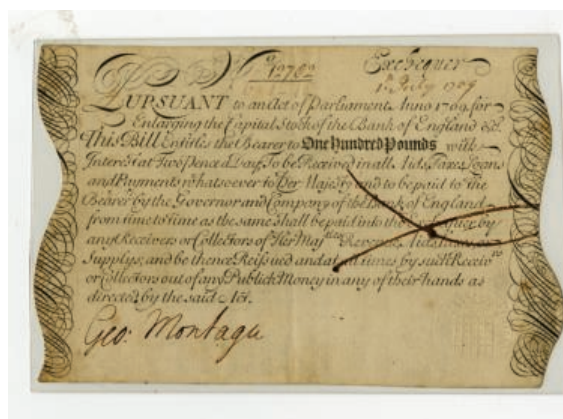 No 10762 Exchequer
1st July 1709
PURSUANT to an Act of Parliament Anno 1709. for
Enlarging the Capital Stock of the Bank of England &c.
This Bill Entitles the Bearer to One Hundred Pounds with
Interest at Two Pence a Day, To be Received in all Aids, Taxes, Loans
and Payments whatsoever to Her Majesty and to be paid to the
Bearer by the Governor and Company of the Bank of England
from time to time as the same shall be paid into the Exchequer by
any Receivers or Collectors of Her Majties Revenue, Aids, Taxes, or
Supplys, and be thence Reissued and at all times by such Receivrs
or Collectors out of any Publick Money in any of their hands as
directed by the said Act.
Geo: Montagu